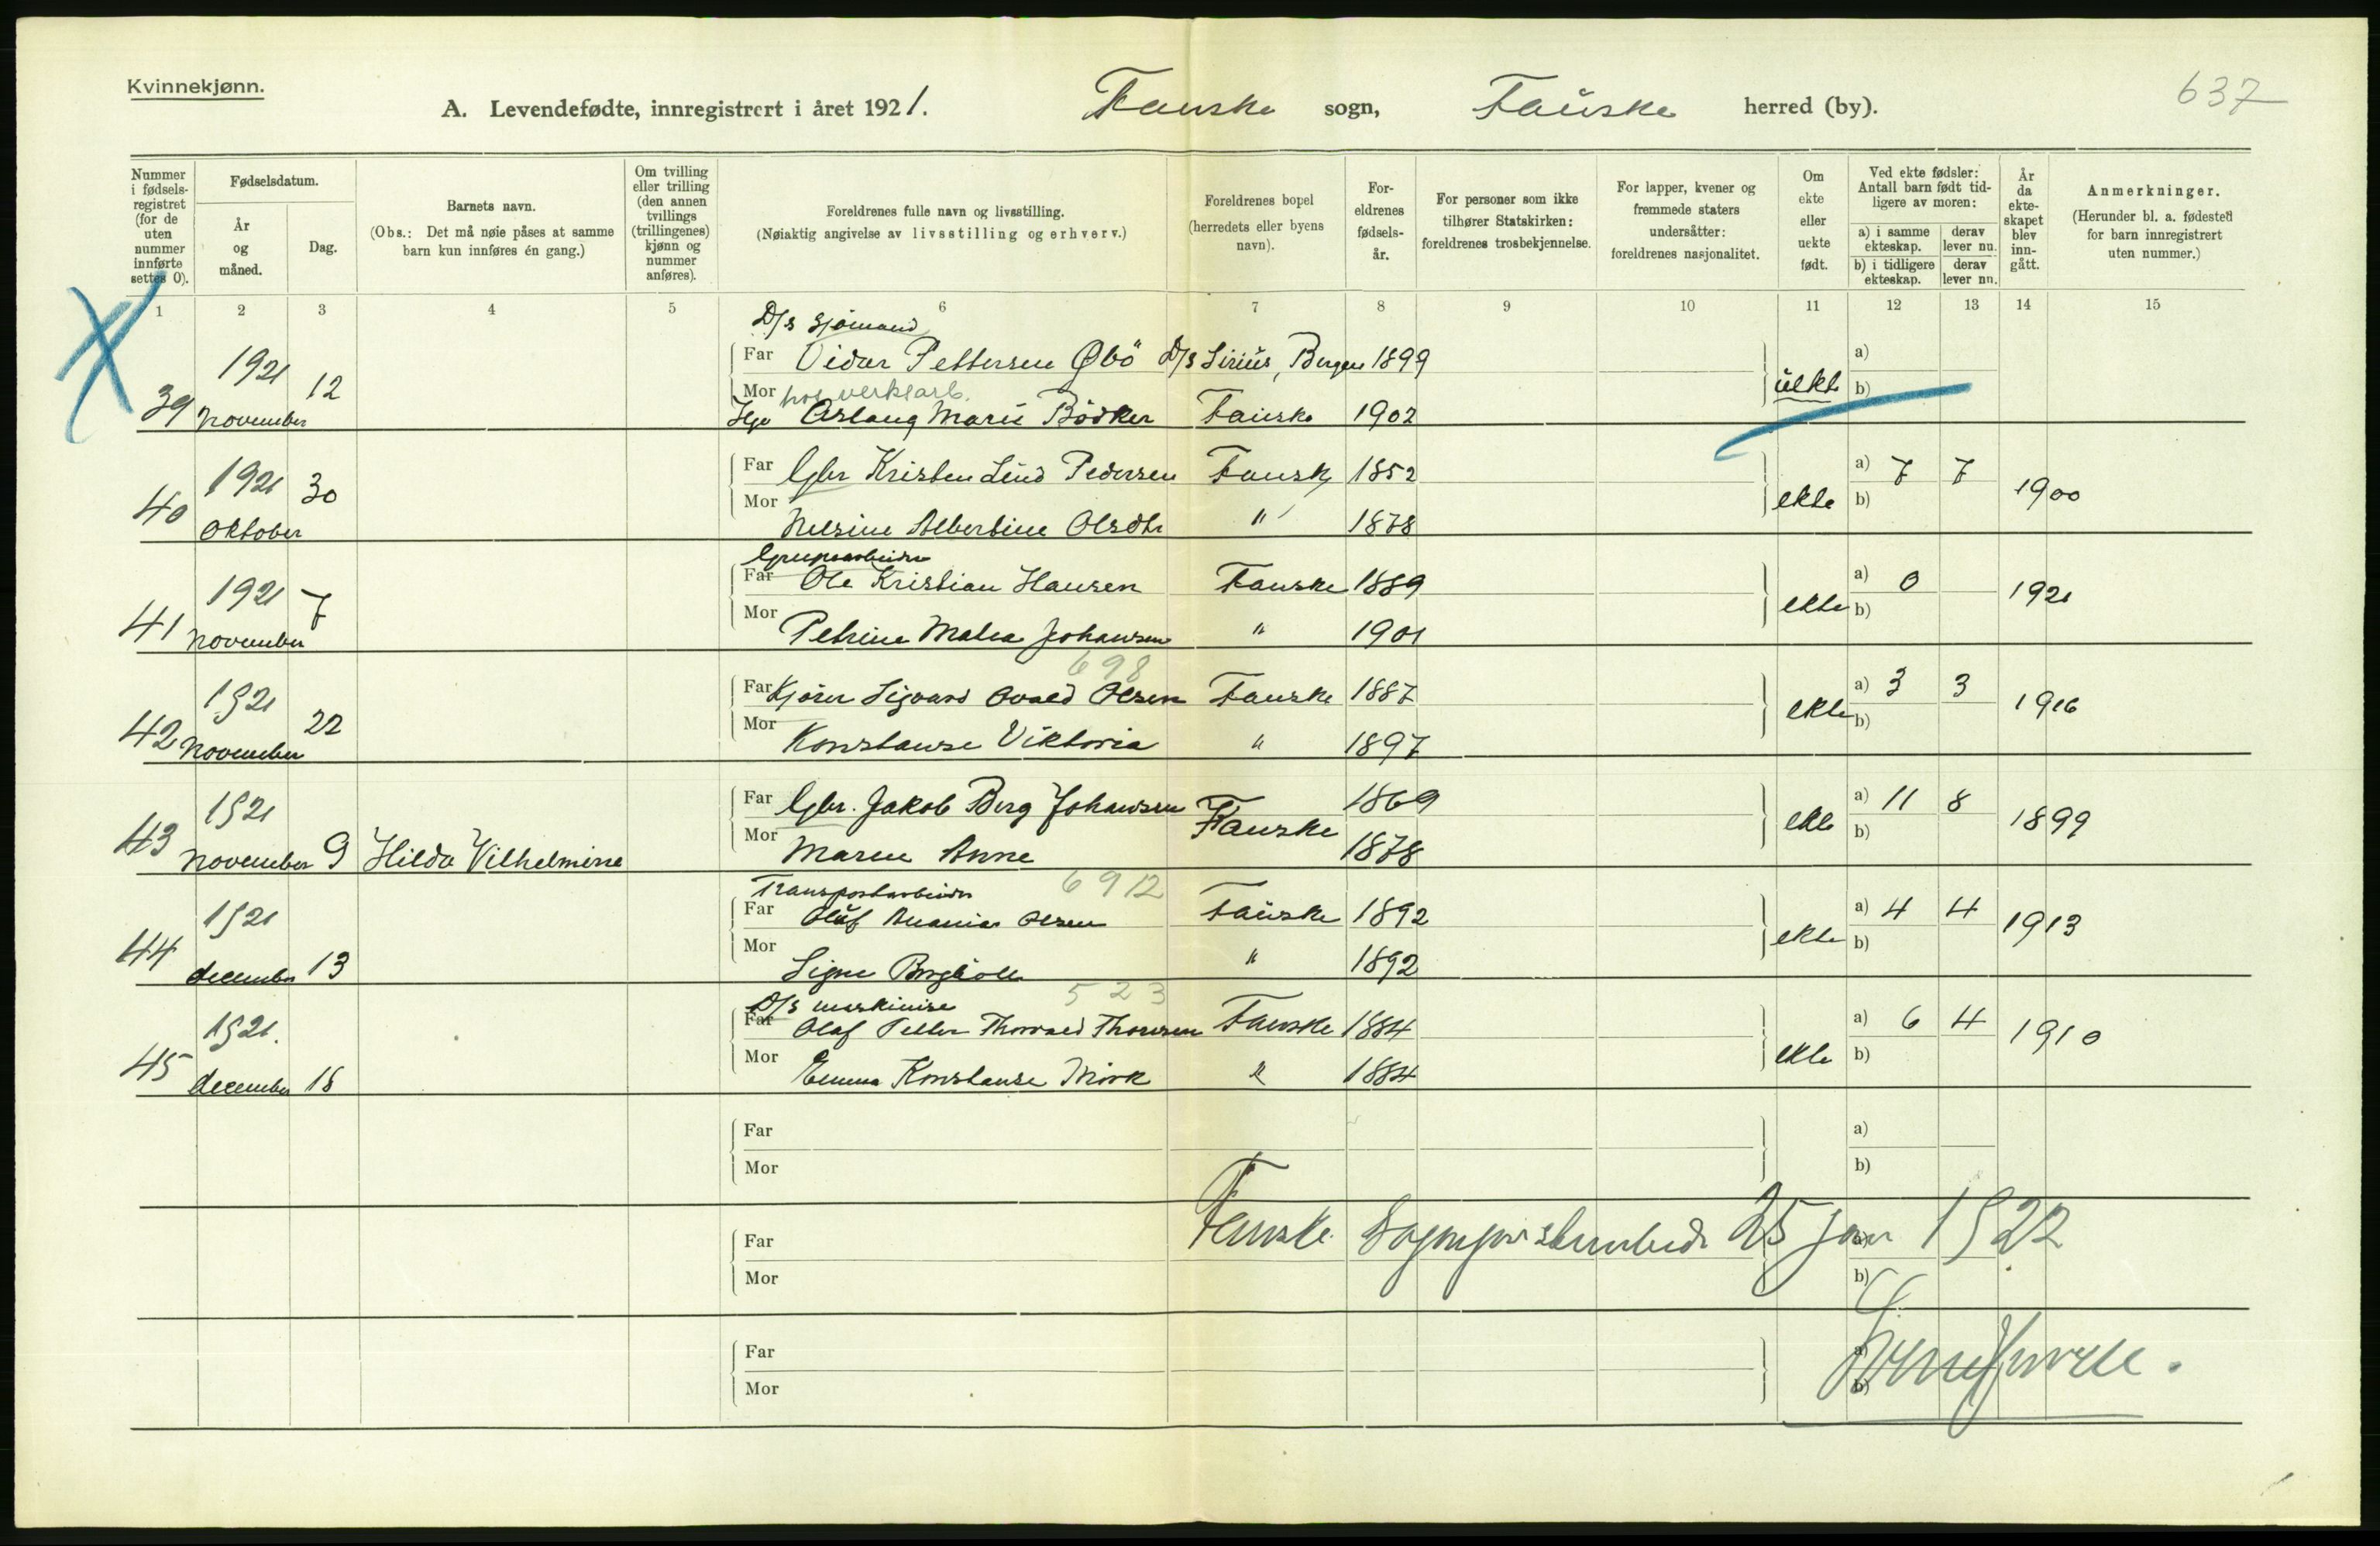 Kvinnekjønn.
637
A. Levendefødte, innregistrert i året 1921. Fauske sogn, Fauske herred (by).
Nummer i fødsels-registret (for de uten nummer innførte settes 0).
Fødselsdatum.
År og måned.
Dag.
Barnets navn.
(Obs.: Det må nøie påses at samme barn kun innføres én gang.)
Om tvilling eller trilling (den annen tvillings (trillingenes) kjønn og nummer anføres).
Foreldrenes fulle navn og livsstilling.
(Nøiaktig angivelse av livsstilling og erhverv.)
Foreldrenes bopel (herredets eller byens navn).
For-eldrenes fødsels-år.
For personer som ikke tilhører Statskirken: foreldrenes trosbekjennelse.
For lapper, kvener og fremmede staters undersåtter: foreldrenes nasjonalitet.
Om ekte eller uekte født.
Ved ekte fødsler: Antall barn født tid-ligere av moren:
a) i samme ekteskap.
derav lever nu.
b) i tidligere ekteskap.
derav lever nn.
År da ekte-skapet blev inn-gått.
Anmerkninger.
(Herunder bl. a. fødested for barn innregistrert uten nummer.)
1 2 3 4 5 6 7 8 9 10 11 12 13 14 15
D/s sjömand
39 1921 november 12
Far Vidar Pettersen Øbö D/s Sirius, Bergen 1899
uekte a) b)
Mor
Aslaug Marie Bödker Fauske 1902
40 1921 oktober 30
Far Gbr Kristen Lund Pedersen Fauske 1852
ekte a) 7 7 b) 1900
Mor Nelsine Albertine Olsdtr " 1878
Grubearbeider
41 1921 november 7
Far Ole Kristian Hansen Fauske 1889
ekte a) 0 b) 1921
Mor Petrine Malea Johansen " 1901
698
42 1921 november 22
Far Kjörer Sigvard Ovald Olsen Fauske 1887
ekte a) 3 3 b) 1916
Mor Konstanse Viktoria " 1897
43 1921 november 9 Hilda Vilhelmine
Far Gbr. Jakob Berg Johansen Fauske 1869
ekte a) 11 8 b) 1899
Mor Maren Anne 1878
Transportarbeider 6912
44 1921 december 13
Far Oluf Ananias Olsen Fauske 1892
ekte a) 4 4 b) 1913
Mor Signe " 1892
D/s maskinise 523
45 1921. december 18
Far Olaf Petter Thorvald Thoresen Fauske 1884
ekte a) 6 4 b) 1910
Mor Emma Konstanse Mörk " 1884
Far a)
Mor b)
Fauske Sogneprestembede 25 jan 1922
Far
Mor b)
Far a)
Mor b)